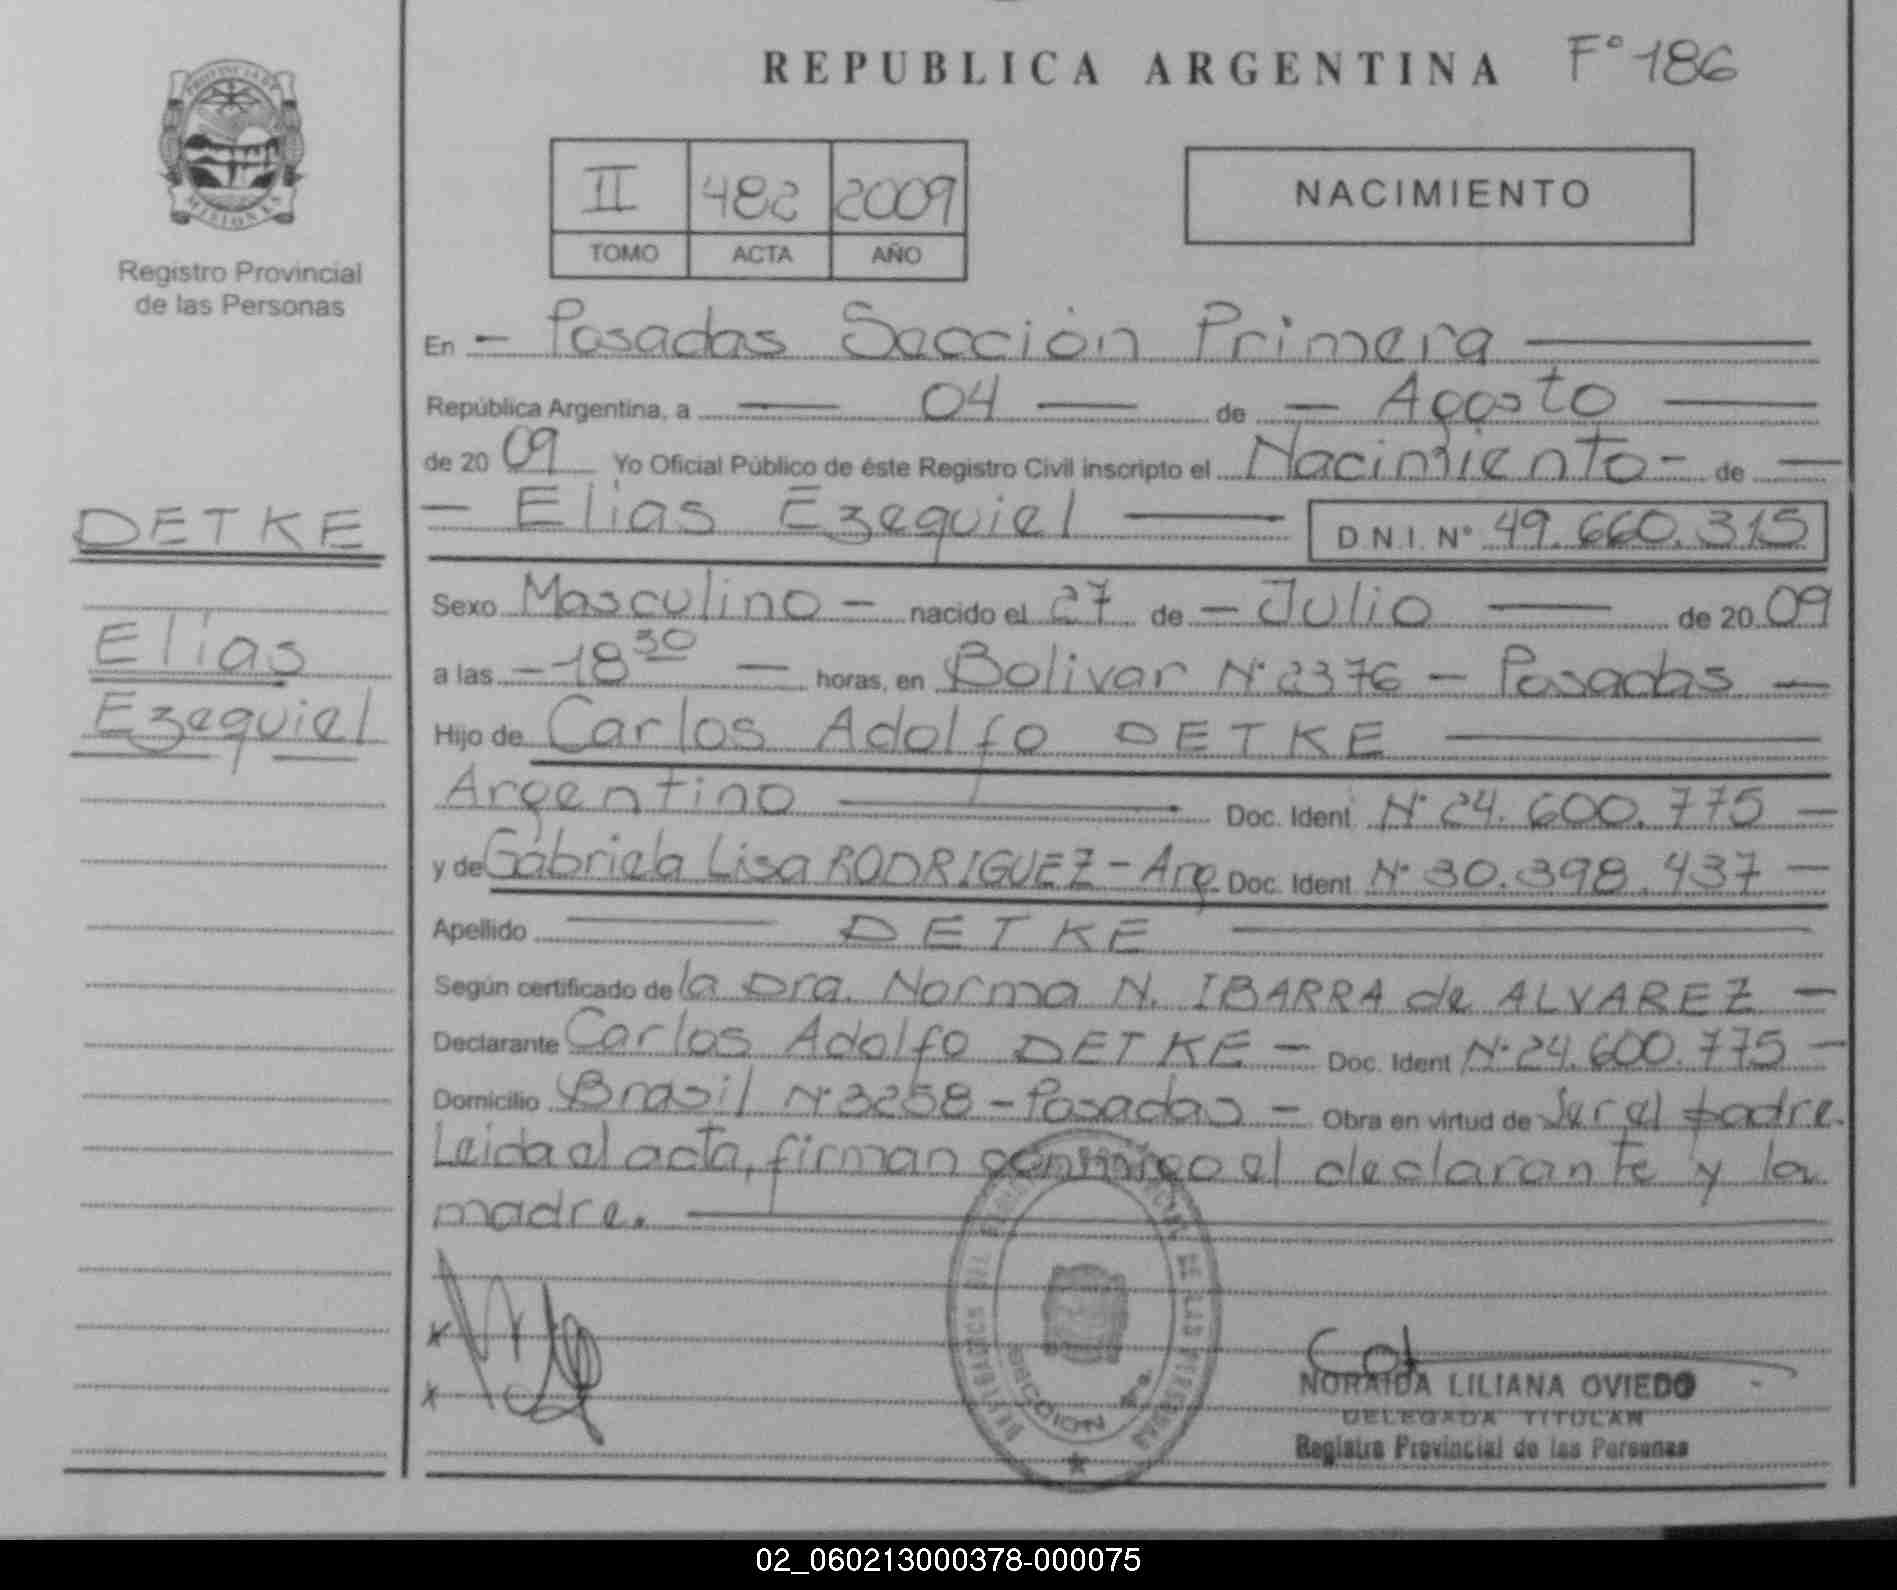 REPUBLICA ARGENTINA F° 186
PROVINCIA DE
MISIONES
Registro Provincial
de las Personas
II 482 2009
TOMO ACTA AÑO
NACIMIENTO
En - Posadas Sección Primera
República Argentina, a 04 de - Agosto
de 20 09 Yo Oficial Público de éste Registro Civil inscripto el Nacimiento - de -
- Elias Ezequiel D.N.I. N° 49.660.315
DETKE
Elias
Ezequiel
Sexo Masculino - nacido el 27 de - Julio de 20 09
a las - 18 30 - horas, en Bolivar N° 2376 - Posadas -
Hijo de Carlos Adolfo DETKE
Argentino Doc. Ident N° 24.600.775 -
y de Gabriela Lisa RODRIGUEZ - Arg. Doc. Ident N° 30.398.437 -
Apellido DETKE
Según certificado de la Dra. Norma N. IBARRA de ALVAREZ -
Declarante Carlos Adolfo DETKE - Doc. Ident N° 24.600.775 -
Domicilio Brasil N° 3258 - Posadas - Obra en virtud de Ser el padre.
Leida el acta, firman conmigo el declarante y la
madre.
x
x
SECCION 1ra.
DE LAS PERSONAS
NORAIDA LILIANA OVIEDO
DELEGADA TITULAR
Registro Provincial de las Personas
02_060213000378-000075